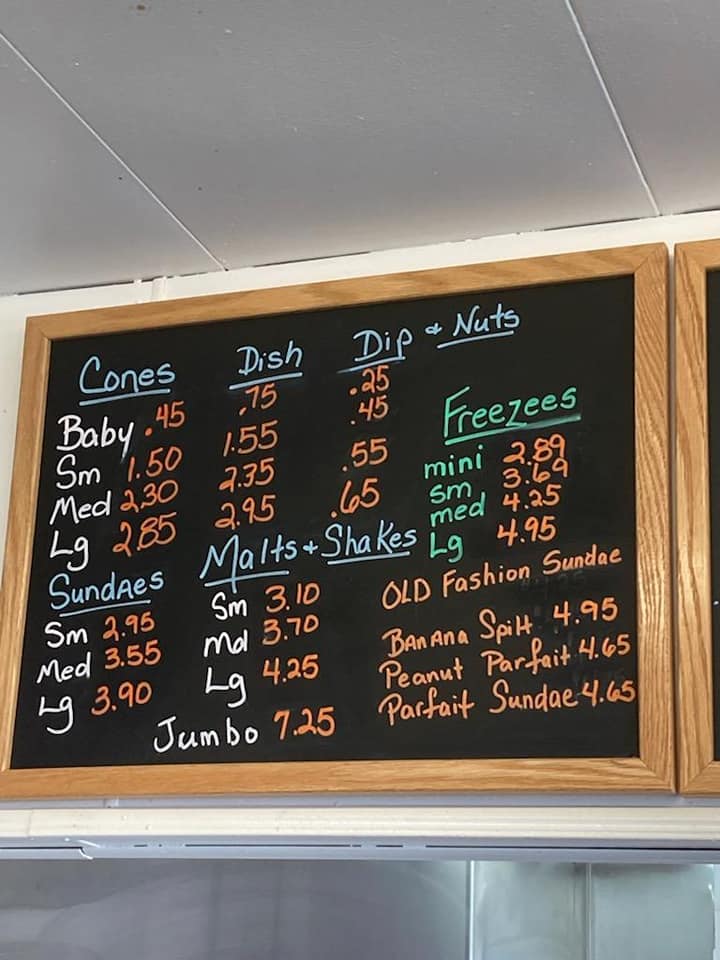 Cones Dish Dip & Nuts
Baby .45 .75 .25
Sm 1.50 1.55 .45
Med 2.30 2.35 .55
Lg 2.85 2.95 .65
Freezees
mini 2.89
sm 3.69
med 4.25
Lg 4.95
Sundaes
Sm 2.95
Med 3.55
Lg 3.90
Malts + Shakes
Sm 3.10
Md 3.70
Lg 4.25
Jumbo 7.25
OLD Fashion Sundae
BanAna Split 4.95
Peanut Parfait 4.65
Parfait Sundae 4.65